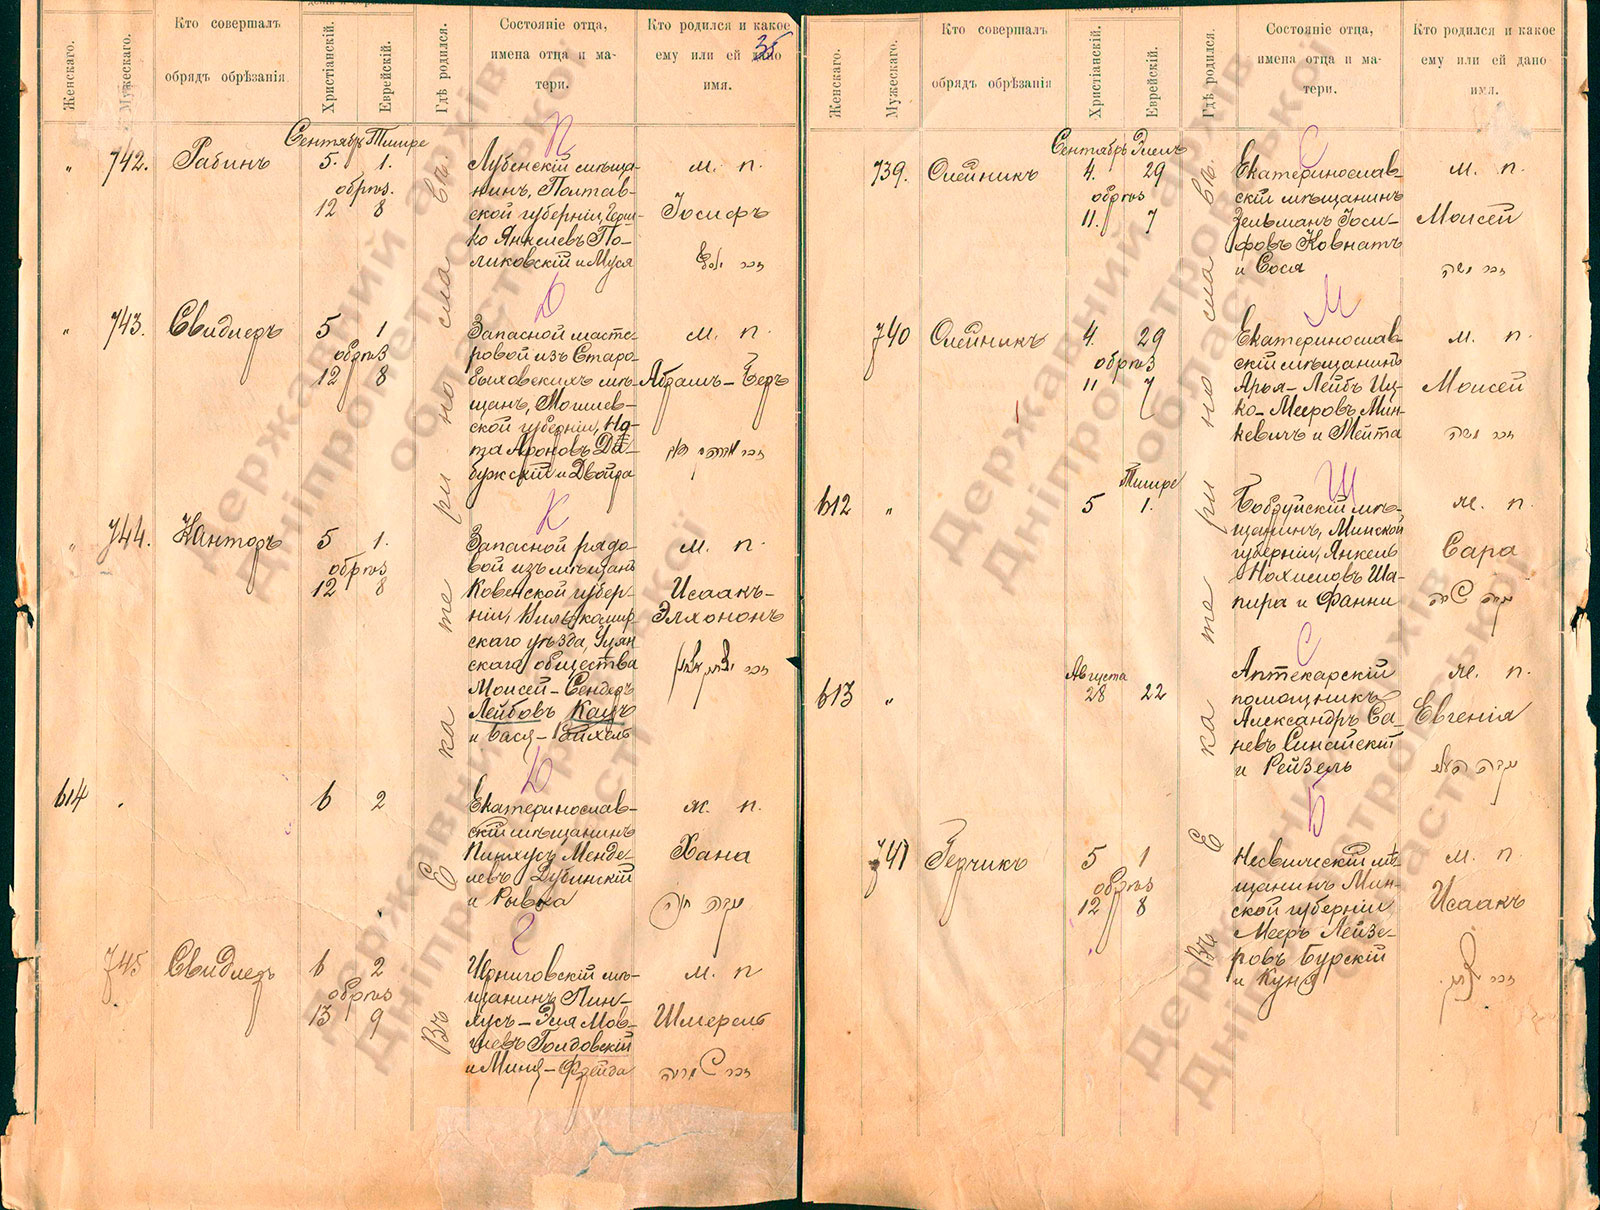 Женскаго.
Мужескаго.
Кто совершалъ
обрядъ обрѣзанія
Христіанскій.
Еврейскій.
Гдѣ родился.
Состояніе отца,
имена отца и ма-
тери.
Кто родился и какое
ему или ей дано
имя.
35
Сентябрь Тишре
П
„ 742. Рабинъ 5. 1.
обрѣз.
12 8
Лубенскій мѣща-
нинъ, Полтав-
ской губерніи, Герш-
ко Янкелевъ По-
ликовскій и Муся
м. п.
Іосифъ
זכר יוסף
Д
„ 743. Свидлеръ 5 1
обрѣз
12 8
Запасной масте-
ровой изъ Старо-
быховскихъ мѣ-
щанъ, Могилев-
ской губерніи, Но-
та Ароновъ
и Двойра
м. п.
Абрамъ-Беръ
זכר
К
„ 744. Канторъ 5 1.
обрѣз
12 8
Запасной рядо-
вой изъ мѣщанъ
Ковенской губер-
ніи, Вилькомир
скаго уѣзда, Уцян
скаго общества
Моисей-Сендеръ
Лейбовъ Кацъ
и Бася-Рихель
м. п.
Исаакъ-
Элхононъ
זכר יצחק אלחנן
Д
614 6 2
Екатеринослав-
скій мѣщанинъ
Пинхусъ Менде-
левъ Дубинскій
и Рывка
ж. п.
Хана
נקבה חנה
Г
745 Свидлеръ 6 2
обрѣз
13 9
Черниговскій мѣ-
щанинъ Пин-
хусъ-Эля Мов-
шевъ Голдовскій
и Миня-Фрейда
м. п
Шмерель
זכר
Въ Екатеринославѣ.
Женскаго.
Мужескаго.
Кто совершалъ
обрядъ обрѣзанія
Христіанскій.
Еврейскій.
Гдѣ родился.
Состояніе отца,
имена отца и ма-
тери.
Кто родился и какое
ему или ей дано
имя.
Сентябрь Элелъ
С
739. Олейникъ 4. 29
обрѣз
11. 7
Екатеринослав-
скій мѣщанинъ
Зельманъ Іоси-
фовъ Ковнатъ
и Сося
м. п.
Моисей
זכר משה
М
740 Олейникъ 4. 29
обрѣз
11 7
Екатеринослав-
скій мѣщанинъ
Арья-Лейбъ Иц-
ко-Мееровъ Мин-
кевичъ и Мейта
м. п.
Моисей
זכר משה
Тишре
Ш
612 „ 5 1.
Бобруйскій мѣ-
щанинъ, Минской
губерніи, Янкель
Нохимовъ Ша-
пира и Фанни
ж. п.
Сара
נקבה שרה
Августа
С
613 „ 28 22
Аптекарскій
помощникъ
Александръ Са-
невъ Синайскій
и Рейзель
ж. п.
Евгенія
נקבה
Б
741 Герчикъ 5 1
обрѣз
12 8
Несвижскій мѣ-
щанинъ Мин-
ской губерніи
Мееръ Лейзе-
ровъ Бурскій
и Куня
м. п.
Исаакъ
זכר יצחק
Въ Екатеринославѣ.
Державний архів
Дніпропетровської
області